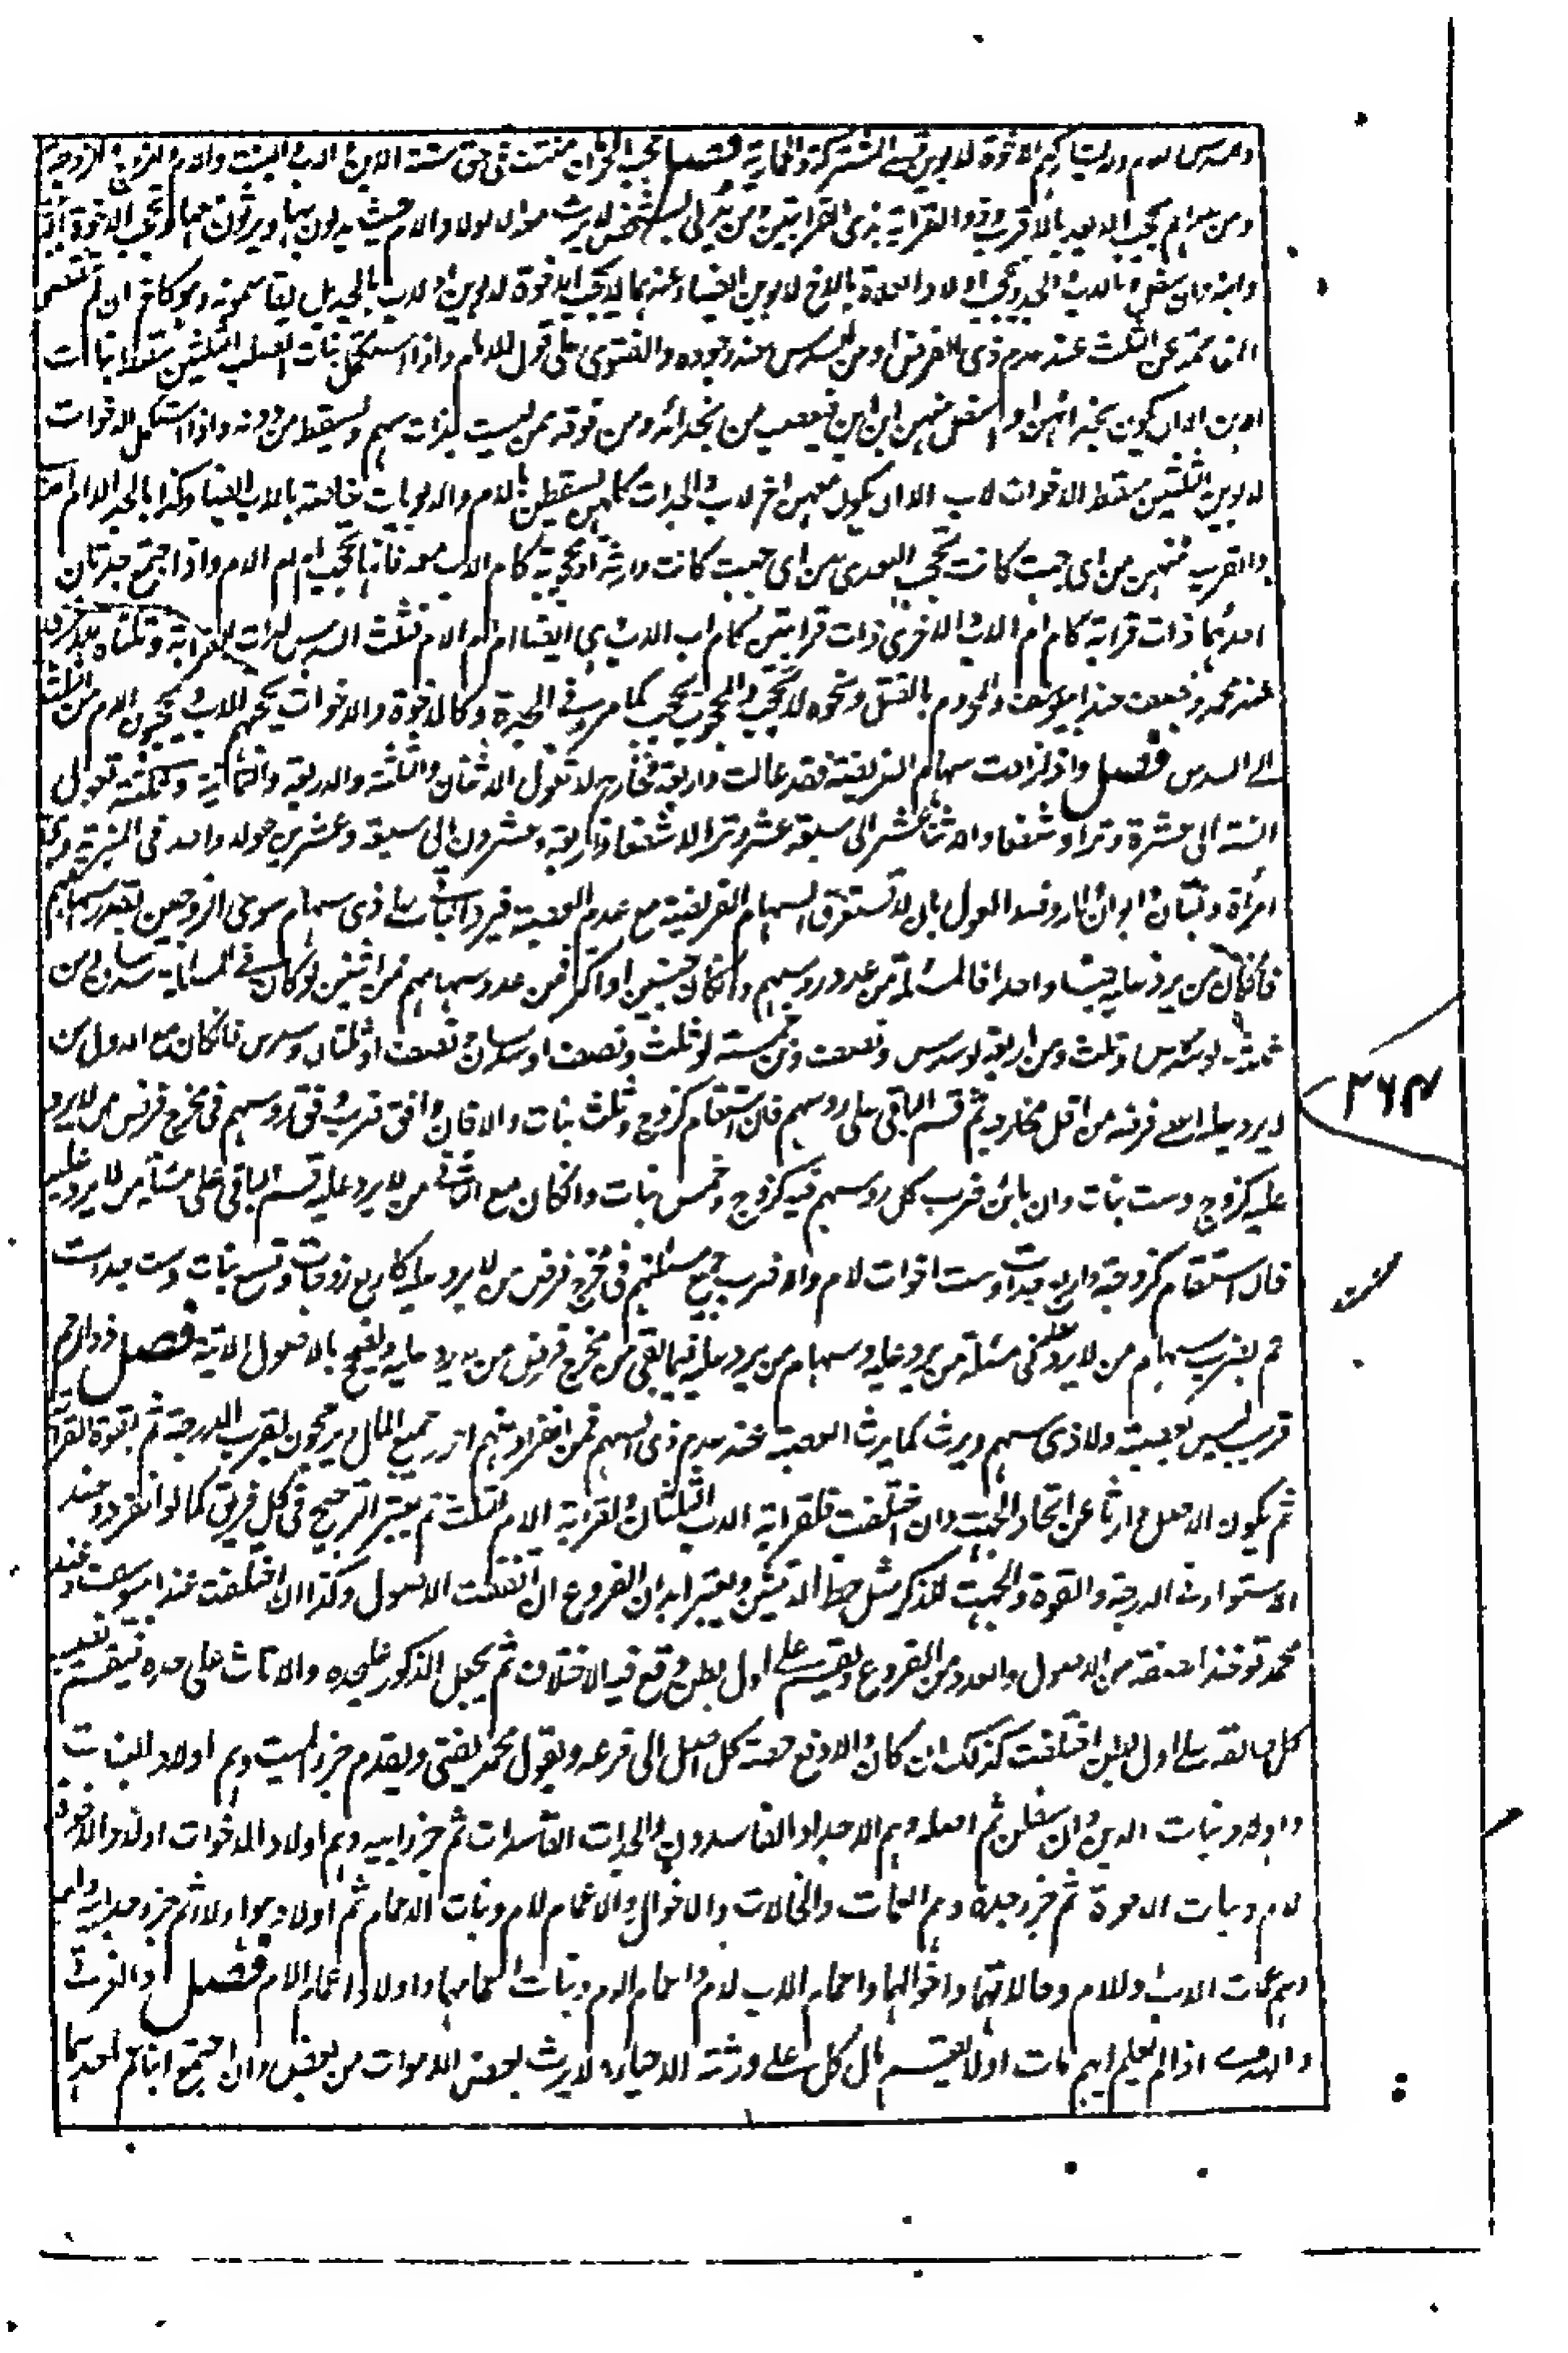 ولا يشاركهم الاخوة لابوين في المشتركة والحمارية فصل حجب الحرمان منتف في حق ستة الابن والاب والبنت والام والزوج والزوجة
ومن سواهم يحجب الابعد بالاقرب وذو القرابة بذى القرابتين ومن يدلى بشخص لا يرث معه الا اولاد الام حيث يدلون بها ويرثون معها وتحجب الاخوة بالابن
وابنه وان سفل وبالاب والجد وتحجب اولاد العلات بالاخ لابوين ايضا وعندهما لا تحجب الاخوة لابوين او لاب بالجد بل يقاسمونه وهو كاخ ان لم تنقصه
المقاسمة عن الثلث عند عدم ذى الفرض او من السدس عند وجوده والفتوى على قول الامام واذا استكمل بنات الصلب الثلثين سقط بنات
الابن الا ان يكون بحذائهن او اسفل منهن ابن ابن فيعصب من بحذائه ومن فوقه ممن ليست بذات سهم ويسقط من دونه واذا استكمل الاخوات
لابوين الثلثين سقط الاخوات لاب الا ان يكون معهن اخ لاب والجدات كلهن يسقطن بالام والابويات خاصة بالاب ايضا وكذا بالجد الا ام الاب
والقربى منهن من اى جهة كانت تحجب البعدى من اى جهة كانت وارثة او محجوبة كام الاب معه فانها تحجب ام ام الام واذا اجتمع جدتان
احدهما ذات قرابة كام ام الاب والاخرى ذات قرابتين كام اب الاب وهى ايضا ام ام الام فثلث السدس لذات القرابة وثلثاه للاخرى
عند محمد ونصف عند ابى يوسف والمحروم بالقتل ونحوه لا يحجب والمحجوب يحجب كما مر في الجدة وكالاخوة والاخوات يحجبهم الاب ويحجبون الام من الثلث
الى السدس فصل واذا زادت سهام الفريضة فقد عالت واربعة مخارج لا تعول الاثنان والثلثة والاربعة والثمانية وثلثة تعول
الستة الى عشرة وترا وشفعا والاثنا عشر الى سبعة عشر وترا لا شفعا واربعة وعشرون الى سبعة وعشرين عولا واحدا في المنبرية وهى
امرأة وبنتان وابوان والرد ضد العول بان لا تستغرق السهام الفريضة مع عدم العصبة فيرد الباقى على ذى سهام سوى الزوجين بقدر سهامهم
فان كان من يرد عليه جنسا واحدا فالمسئلة من عدد رؤسهم وان كان جنسين او اكثر فمن عدد سهامهم فمن اثنين لو كان في المسئلة سدسان ومن
ثلثة لو سدس وثلث ومن اربعة لو سدس ونصف ومن خمسة لو ثلث ونصف او سدسان ونصف او ثلثان وسدس فان كان مع الاول من
لا يرد عليه اعط فرضه من اقل مخارجه ثم قسم الباقى على رؤسهم فان استقام كزوج وثلث بنات والا فان وافق ضرب وفق رؤسهم في مخرج فرض من لا يرد
عليه كزوج وست بنات وان باين ضرب كل رؤسهم فيه كزوج وخمس بنات وان كان مع الثانى من لا يرد عليه قسم الباقى على مسئلة من يرد عليه
فان استقام كزوجة واربع جدات وست اخوات لام والا ضرب جميع مسئلتهم في مخرج فرض من لا يرد عليه كاربع زوجات وتسع بنات وست جدات
ثم يضرب سهام من لا يرد عليه في مسئلة من يرد عليه وسهام من يرد عليه فيما بقى من مخرج فرض من لا يرد عليه ويصح بالاصول الاتية فصل ذو الرحم
قريب ليس بعصبة ولا ذى سهم ويرث كما يرث العصبة عند عدم ذى السهم فمن انفرد منهم احرز جميع المال ويرجحون بقرب الدرجة ثم بقوة القرابة
ثم بكون الاصل وارثا عن اتحاد الجهة وان اختلفت فلقرابة الاب الثلثان ولقرابة الام الثلث ثم يعتبر الترجيح في كل فريق كما لو انفرد وعند
الاستواء في الدرجة والقوة والجهة للذكر مثل حظ الانثيين ويعتبر ابدان الفروع ان اتفقت الاصول وكذا ان اختلفت عند ابى يوسف وعند
محمد تؤخذ الصفة من الاصول والعدد من الفروع ويقسم على اول بطن وقع فيه الاختلاف ثم يجعل الذكور على حده والاناث على حدة فيقسم نصيب
كل طائفة على اول بطن اختلفت كذلك ان كان والا دفع حصة كل اصل الى فرعه وبقول محمد يفتى ويقدم جزء الميت وهم اولاد البنات
واولاد بنات الابن وان سفلن ثم اصله وهم الاجداد الفاسدون والجدات الفاسدات ثم جزء ابيه وهم اولاد الاخوات واولاد الاخوة
لام وبنات الاخوة ثم جزء جده وهم العمات والخالات والاخوال والاعمام لام وبنات الاعمام ثم اولاد هؤلاء ثم جزء جد ابيه وامه
وهم عمات الاب والام وخالاتهما واخوالهما واعمام الاب لام واعمام الام وبنات اعمامهما واولاد اعمام الام فصل والغرقى
والهدمى اذا لم يعلم ايهم مات اولا يقسم مال كل على ورثته الاحياء ولا يرث بعض الاموات من بعض وان اجتمع ابنا عم احدهما